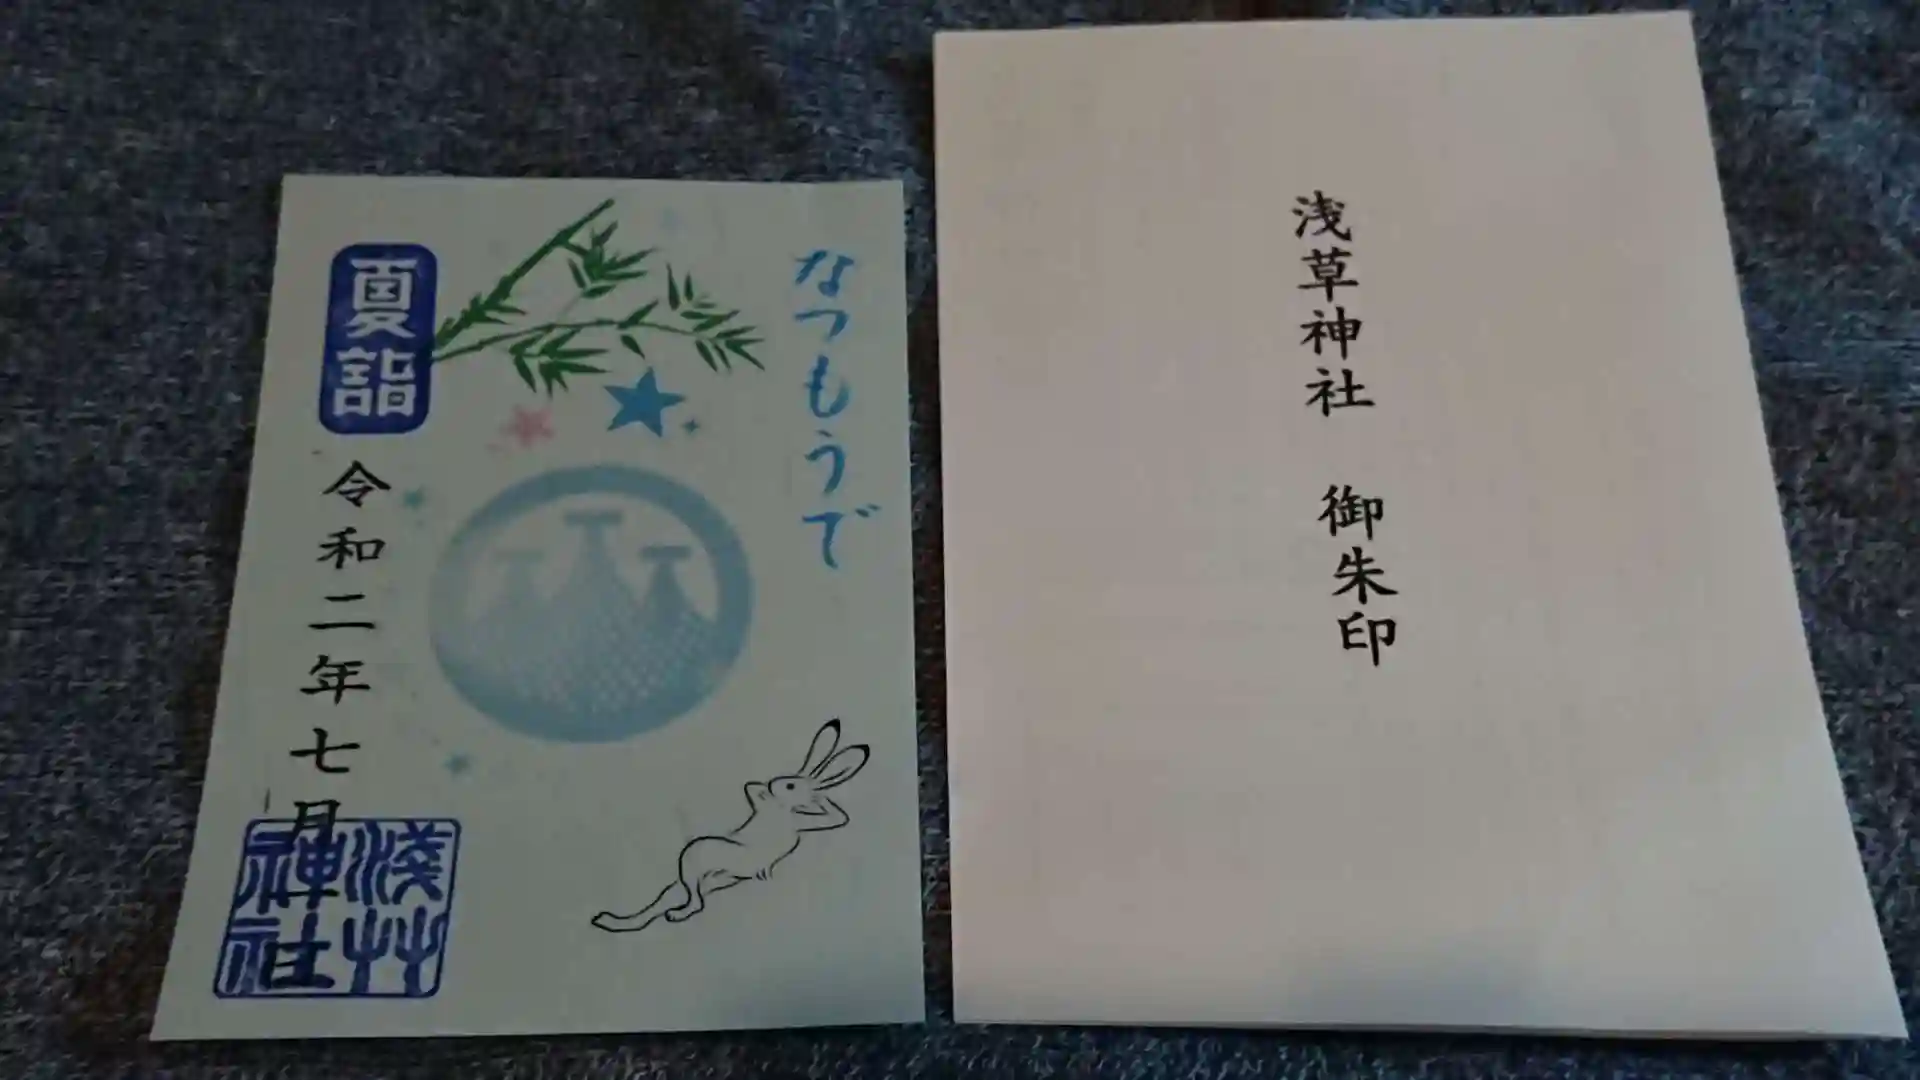 なつもうで
夏詣
令和二年七月
淺草
神社
浅草神社 御朱印